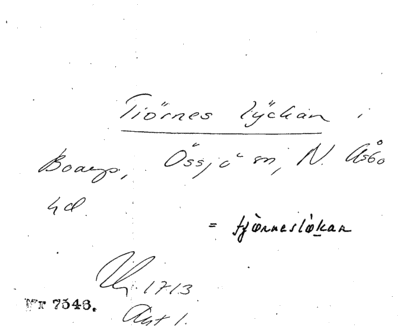 Tiörnes lÿckan i
Boarp, Össjö sn, N. Åsbo
hd.
= tjörneslökar
1713
Nr 7546. Akt 1.